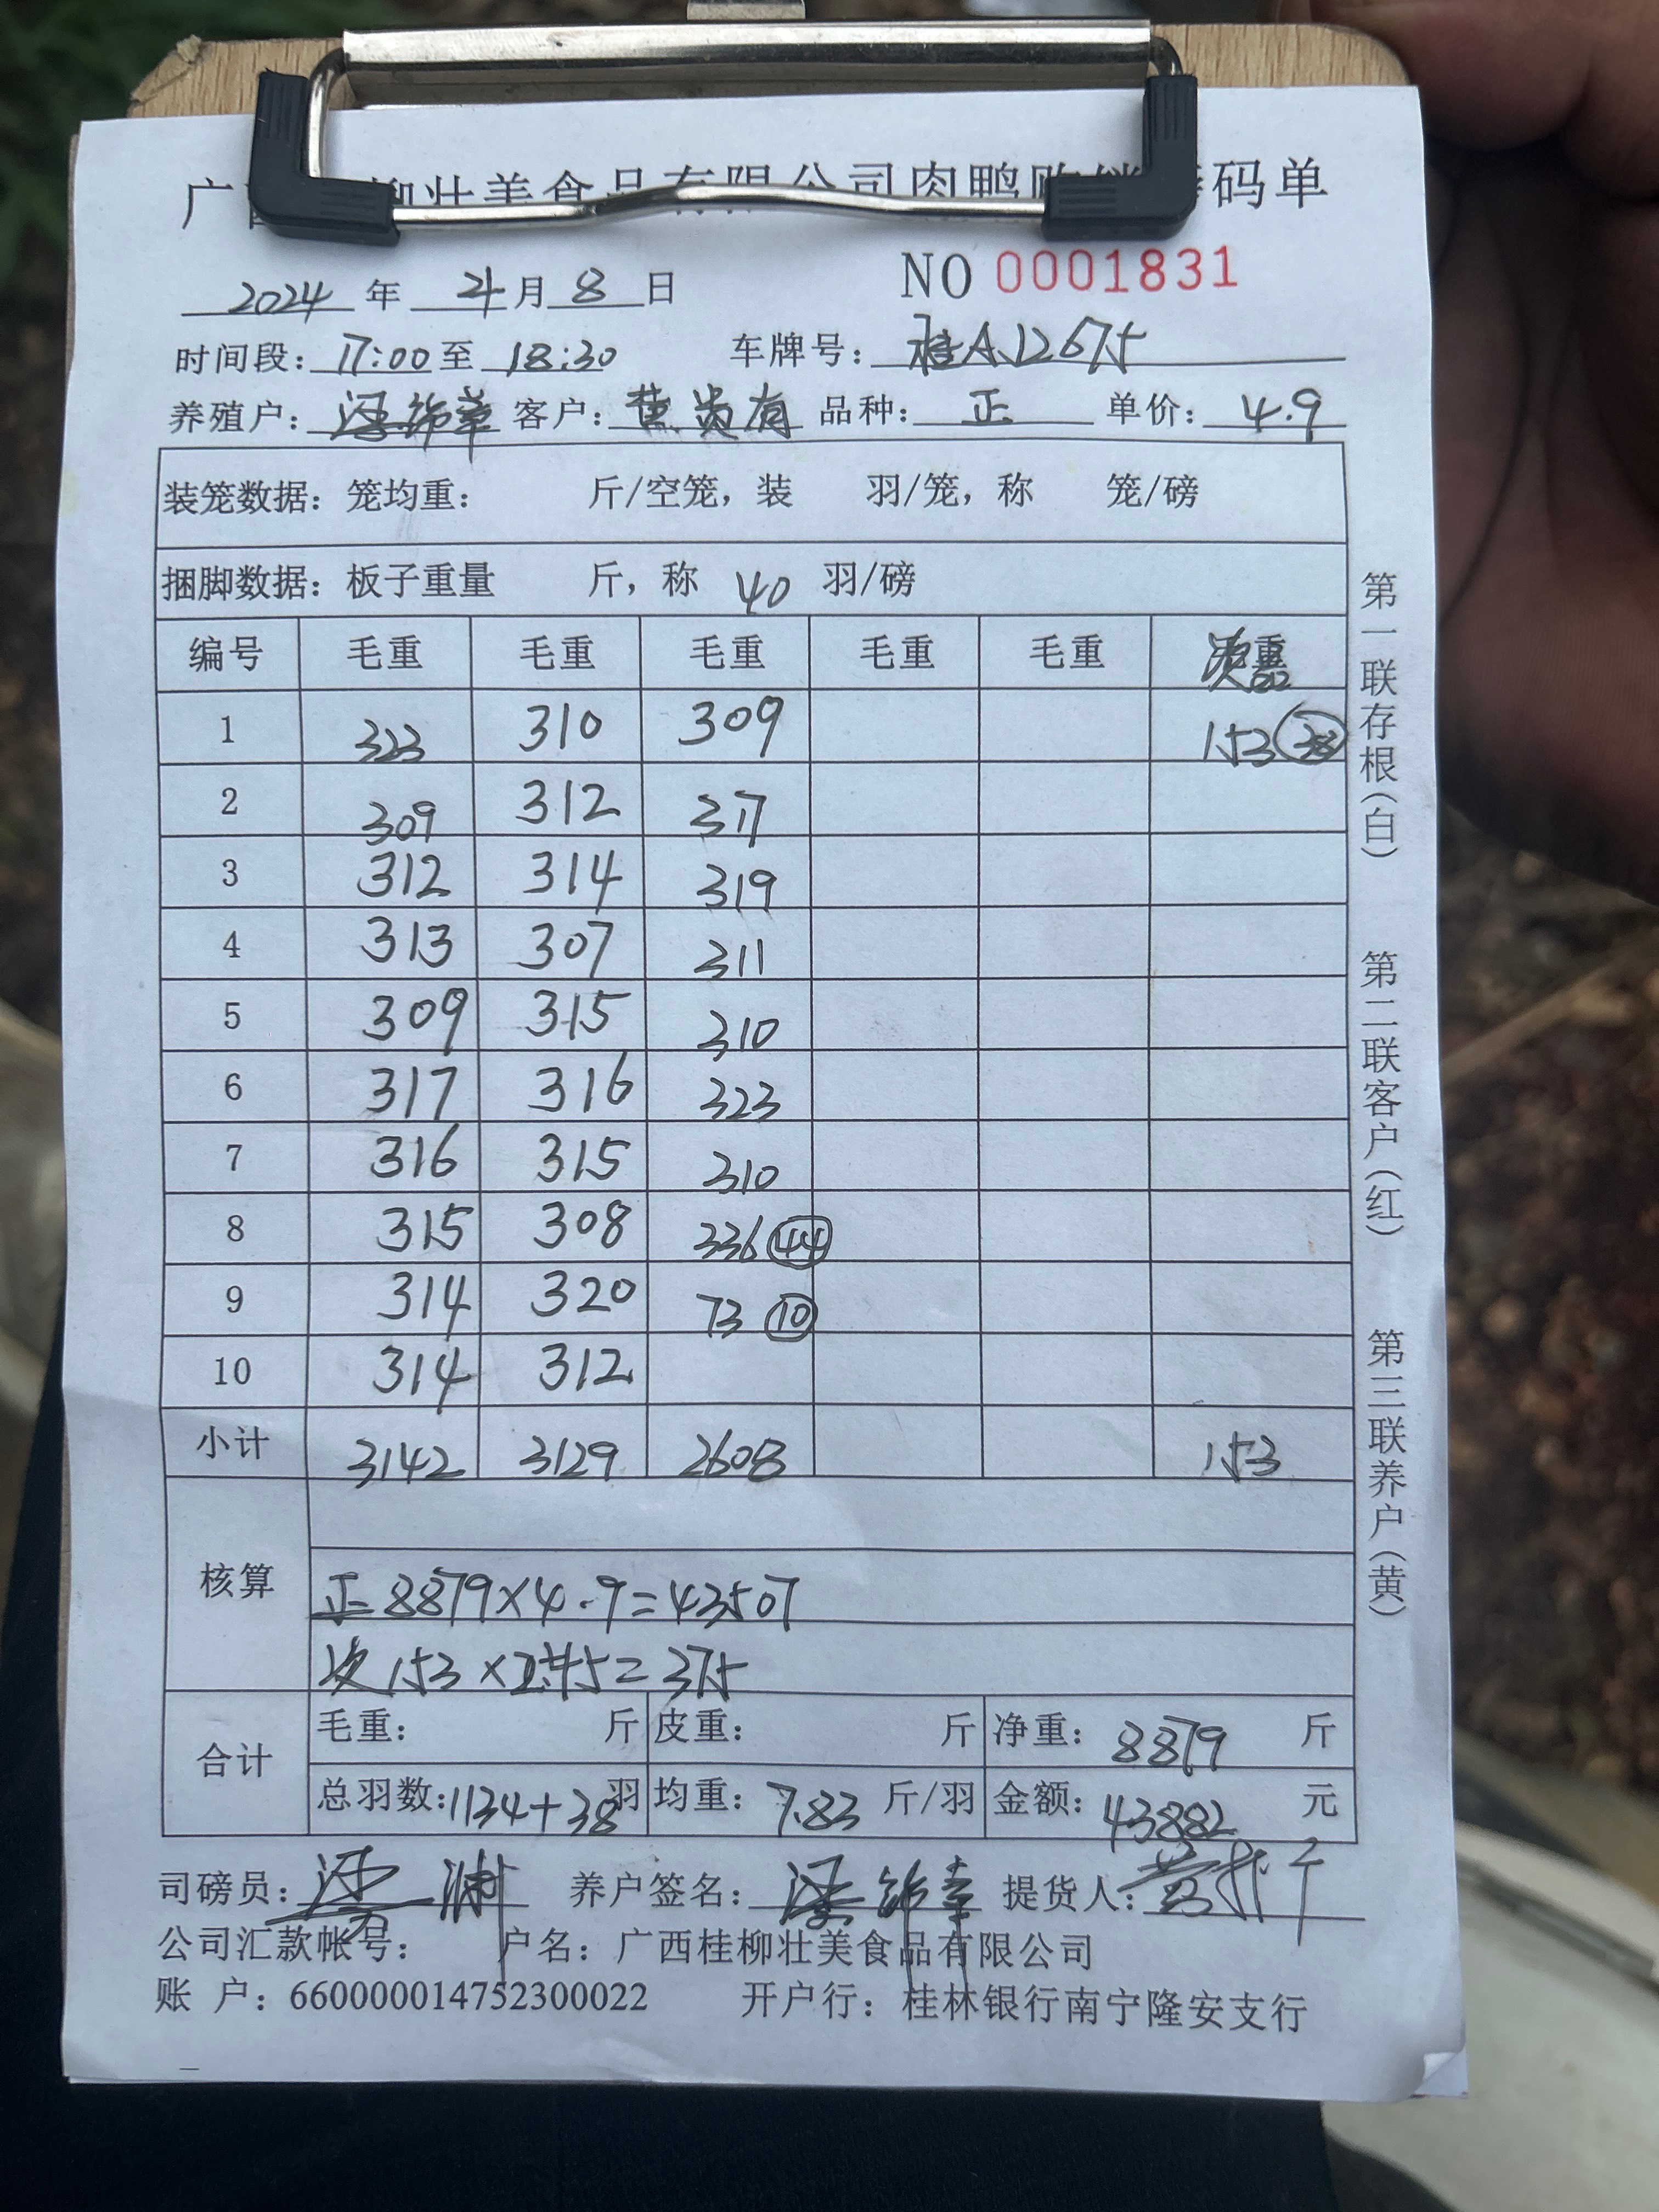 广 柳壮美食品有限公司肉鸭购销 码单
NO 0001831
2024 年 4 月 8 日
时间段: 17:00 至 18:30 车牌号: 桂A
养殖户: 客户: 黄贵有 品种: 正 单价: 4.9
装笼数据: 笼均重: 斤/空笼, 装 羽/笼, 称 笼/磅
捆脚数据: 板子重量 斤, 称 40 羽/磅
编号 毛重 毛重 毛重 毛重 毛重
1 323 310 309 153 38
2 309 312 317
3 312 314 319
4 313 307 311
5 309 315 310
6 317 316 323
7 316 315 310
8 315 308 336 44
9 314 320 73 10
10 314 312
小计 3142 3129 2608 153
核算
正 8879×4.9=43507
次 153× =375
合计
毛重: 斤 皮重: 斤 净重: 8879 斤
总羽数: 1134+38 羽 均重: 7.83 斤/羽 金额: 43882 元
司磅员: 养户签名: 提货人:
公司汇款帐号: 户名: 广西桂柳壮美食品有限公司
账 户: 660000014752300022 开户行: 桂林银行南宁隆安支行
第一联存根(白) 第二联客户(红) 第三联养户(黄)